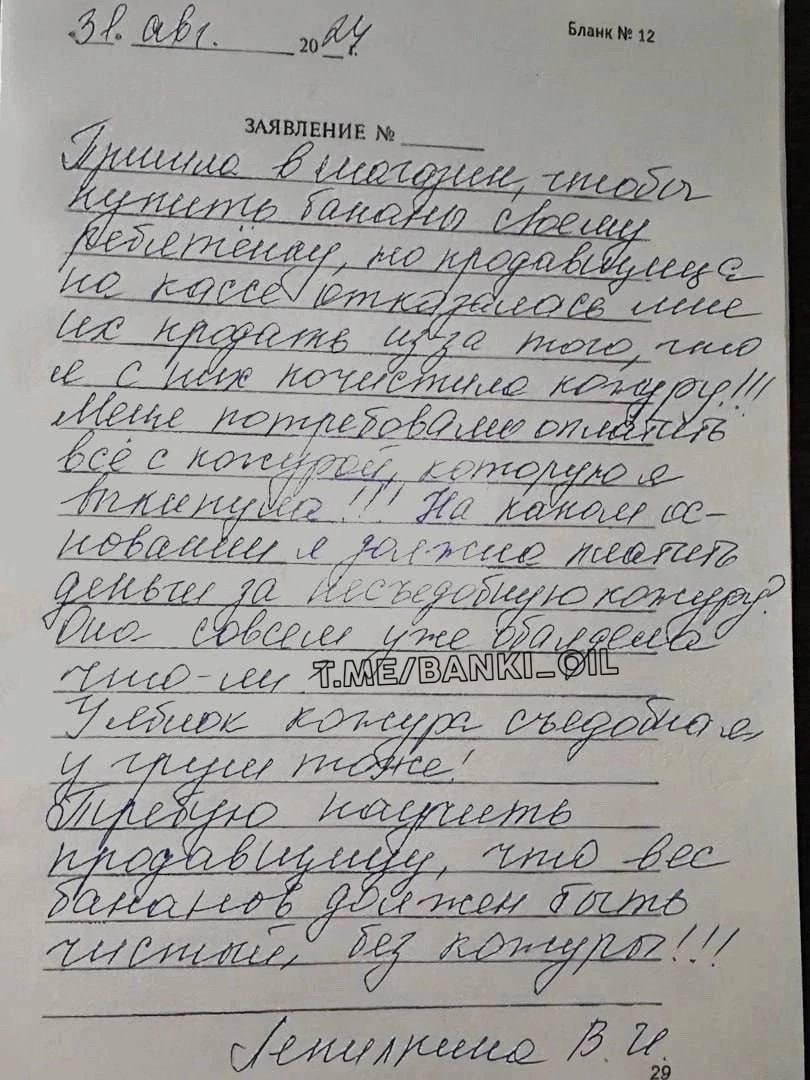 31. авг. 2024 г.
Бланк № 12
ЗАЯВЛЕНИЕ №
Пришла в магазин, чтобы
купить бананы своему
ребятёнку, но продавщица
на кассе отказалась мне
их продать из за того, что
я с них почистила кожуру!!!
Меня потребовали оплатить
всё с кожурой, которую я
выкинула!!! На каком ос-
новании я должна платить
деньги за несъедобную кожуру?
Она совсем уже обалдела
что-ли
T.ME/BANKI_OIL
У яблок кожура съедобная,
у груш тоже!
Требую научить
продавщицу, что вес
бананов должен быть
чистый, без кожуры!!!
В. И.
29